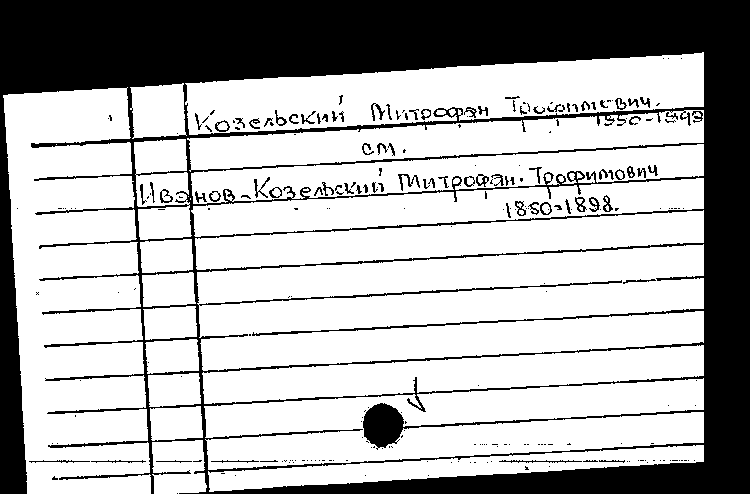 Козельский Митрофан Трофимович.
1850-1898
см.
Иванов-Козельский Митрофан Трофимович
1850-1898.